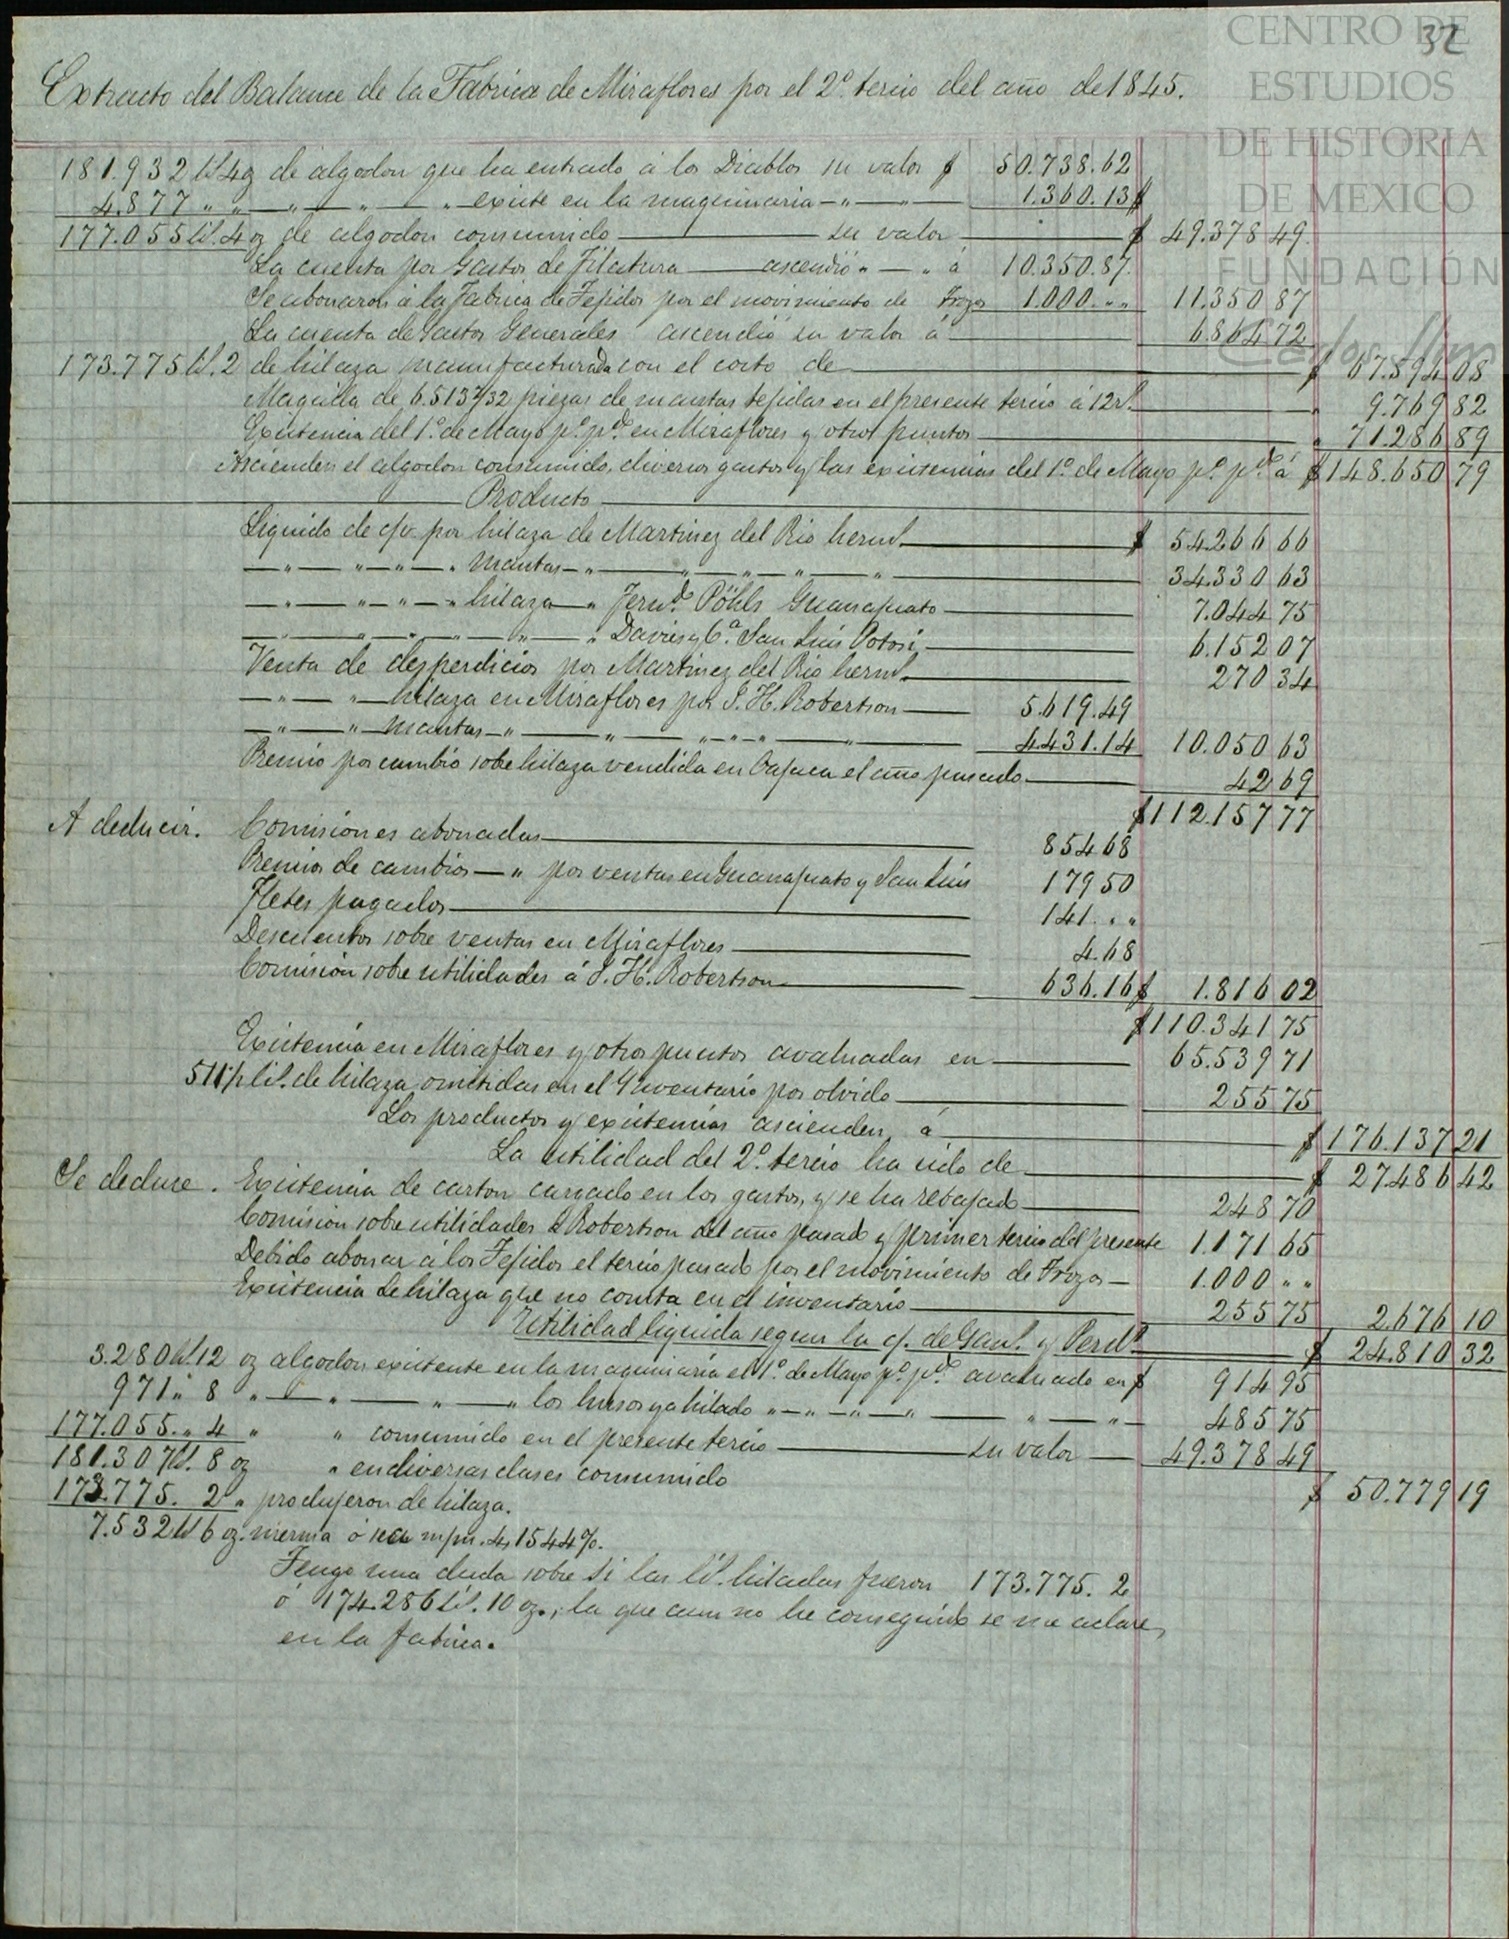 CENTRO DE
ESTUDIOS
DE HISTORIA
DE MEXICO
FUNDACIÓN
Carlos Slim
32
Extracto del Balance de la Fabrica de Miraflores por el 2º tercio del año de 1845.
181.932 lbs 4 oz de algodon que ha entrado á los Diablos su valor $ 50.738.62
4.877 " " — " — " — " existe en la maquinaria — " — " — 1.360.13 $
177.055 lbs. 4 oz de algodon consumido — su valor — $ 49.378 49
La cuenta por Gastos de Filatura — ascendió " — " á 10.350.87.
Se abonaron á la Fabrica de Tejidos por el movimiento de Trozos 1.000. " " 11.350 87
La cuenta de Gastos Generales ascendió su valor á — 6.864 72
173.775 lbs. 2 de hilaza manufacturada con el costo de — $ 67.594 08
Maquila de 6.513 7/32 piezas de mantas tejidas en el presente tercio á 12 rs. — " 9.769 82
Existencia del 1º de Mayo pº pdº en Miraflores y otros puntos — " 71.286 89
Ascienden el algodon consumido, diversos gastos y las existencias del 1º de Mayo pº pdº á $ 148.650 79
Producto
Liquido de c/v por hilaza de Martinez del Rio herms. — $ 54.266 66
— " — " — " — " mantas — " — " — " — " — " — 34.330 63
— " — " — " — " hilaza — " Fernd. Pöhls Guanajuato — 7.044 75
— " — " — " — " — " — " Davies y Cª. San Luis Potosi — 6.152 07
Venta de desperdicios por Martinez del Rio herms. — 270 34
— " — " — hilaza en Miraflores por J. H. Robertson — 5.619.49
— " — " — mantas — " — " — " — " — " — " — 4.431.14 10.050 63
Premio por cambio sobre hilaza vendida en Oajaca el año pasado — 42 69
$ 112.157 77
A deducir. Comisiones abonadas — 854 68
Premios de cambios — " por ventas en Guanajuato y San Luis 179 50
Fletes pagados — 141. " "
Descuentos sobre ventas en Miraflores — 4.68
Comision sobre utilidades á J. H. Robertson — 636.16 $ 1.816 02
$ 110.341 75
Existencia en Miraflores y otros puntos avaluadas en — 65.539 71
511 1/2 lbs. de hilaza omitidas en el Inventario por olvido — 255 75
Los productos y existencias ascienden á — $ 176.137 21
La utilidad del 2º tercio ha sido de — $ 27.486 42
Se deduce. Existencia de carton cargado en los gastos, y se ha rebajado — 248 70
Comision sobre utilidades á Robertson del año pasado y primer tercio del presente 1.171 65
Debido abonar á los Tejidos el tercio pasado por el movimiento de Trozos — 1.000 " "
Existencia de hilaza que no consta en el inventario — 255 75 2.676 10
Utilidad liquida segun la c/. de Gans. y Perds. — $ 24.810 32
3.280 lbs. 12 oz algodon existente en la maquinaria el 1º de Mayo pº pdº avaluado en $ 914 95
971 " 8 " — " — " — " los husos ya hilado " — " — " — " — " — " — 485 75
177.055. " 4 " " consumido en el presente tercio — su valor — 49.378 49
181.307 lbs. 8 oz " en diversas clases consumido $ 50.779 19
173.775. 2 " produjeron de hilaza.
7.532 lbs 6 oz. merma ó sea mpm. 4,1544%.
Tengo una duda sobre si las lbs. hiladas fueron 173.775. 2
ó 174.286 lbs. 10 oz., la que aun no he conseguido se me aclare,
en la fabrica.